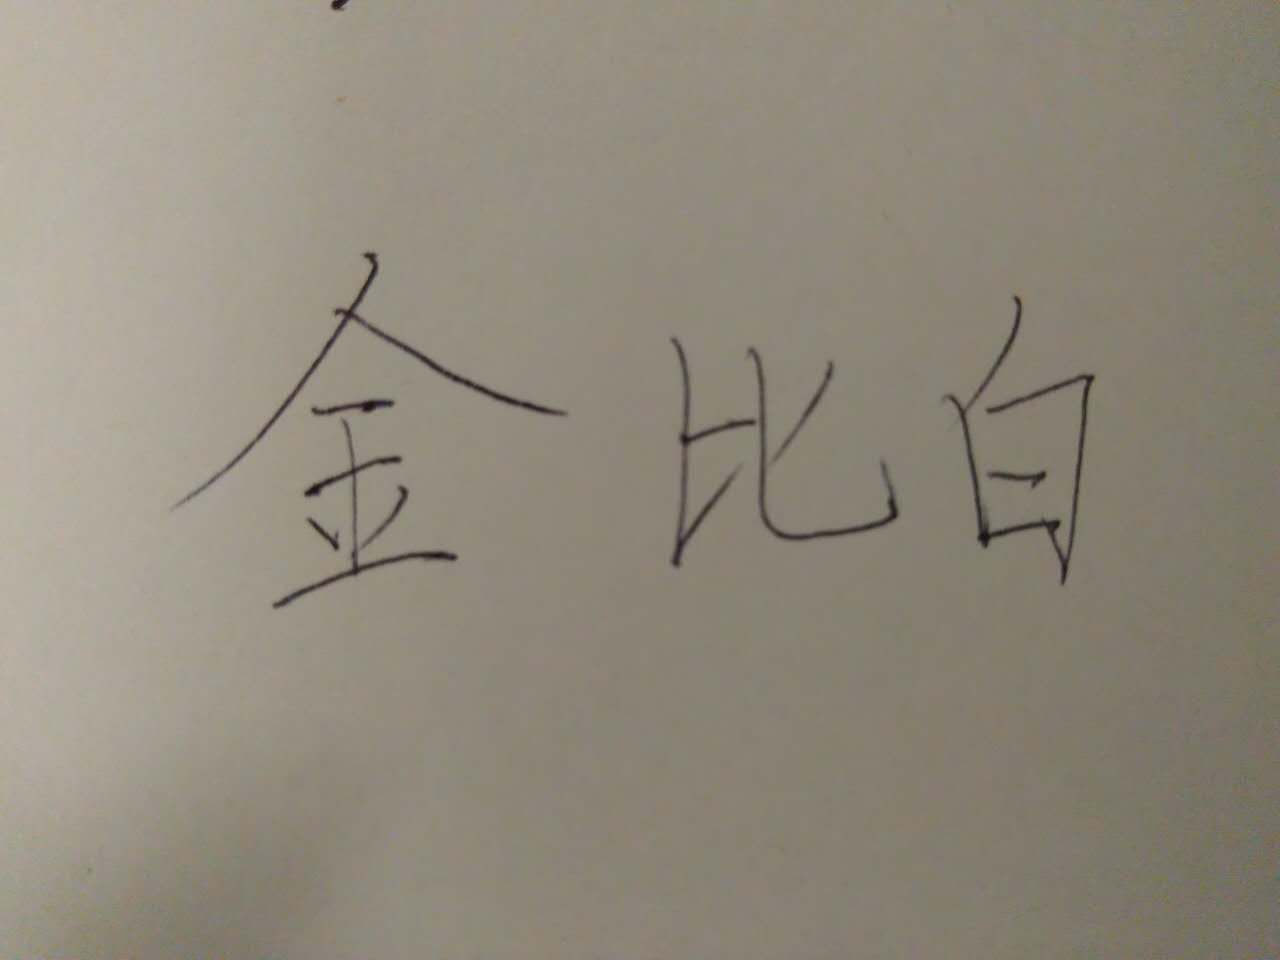 金比白